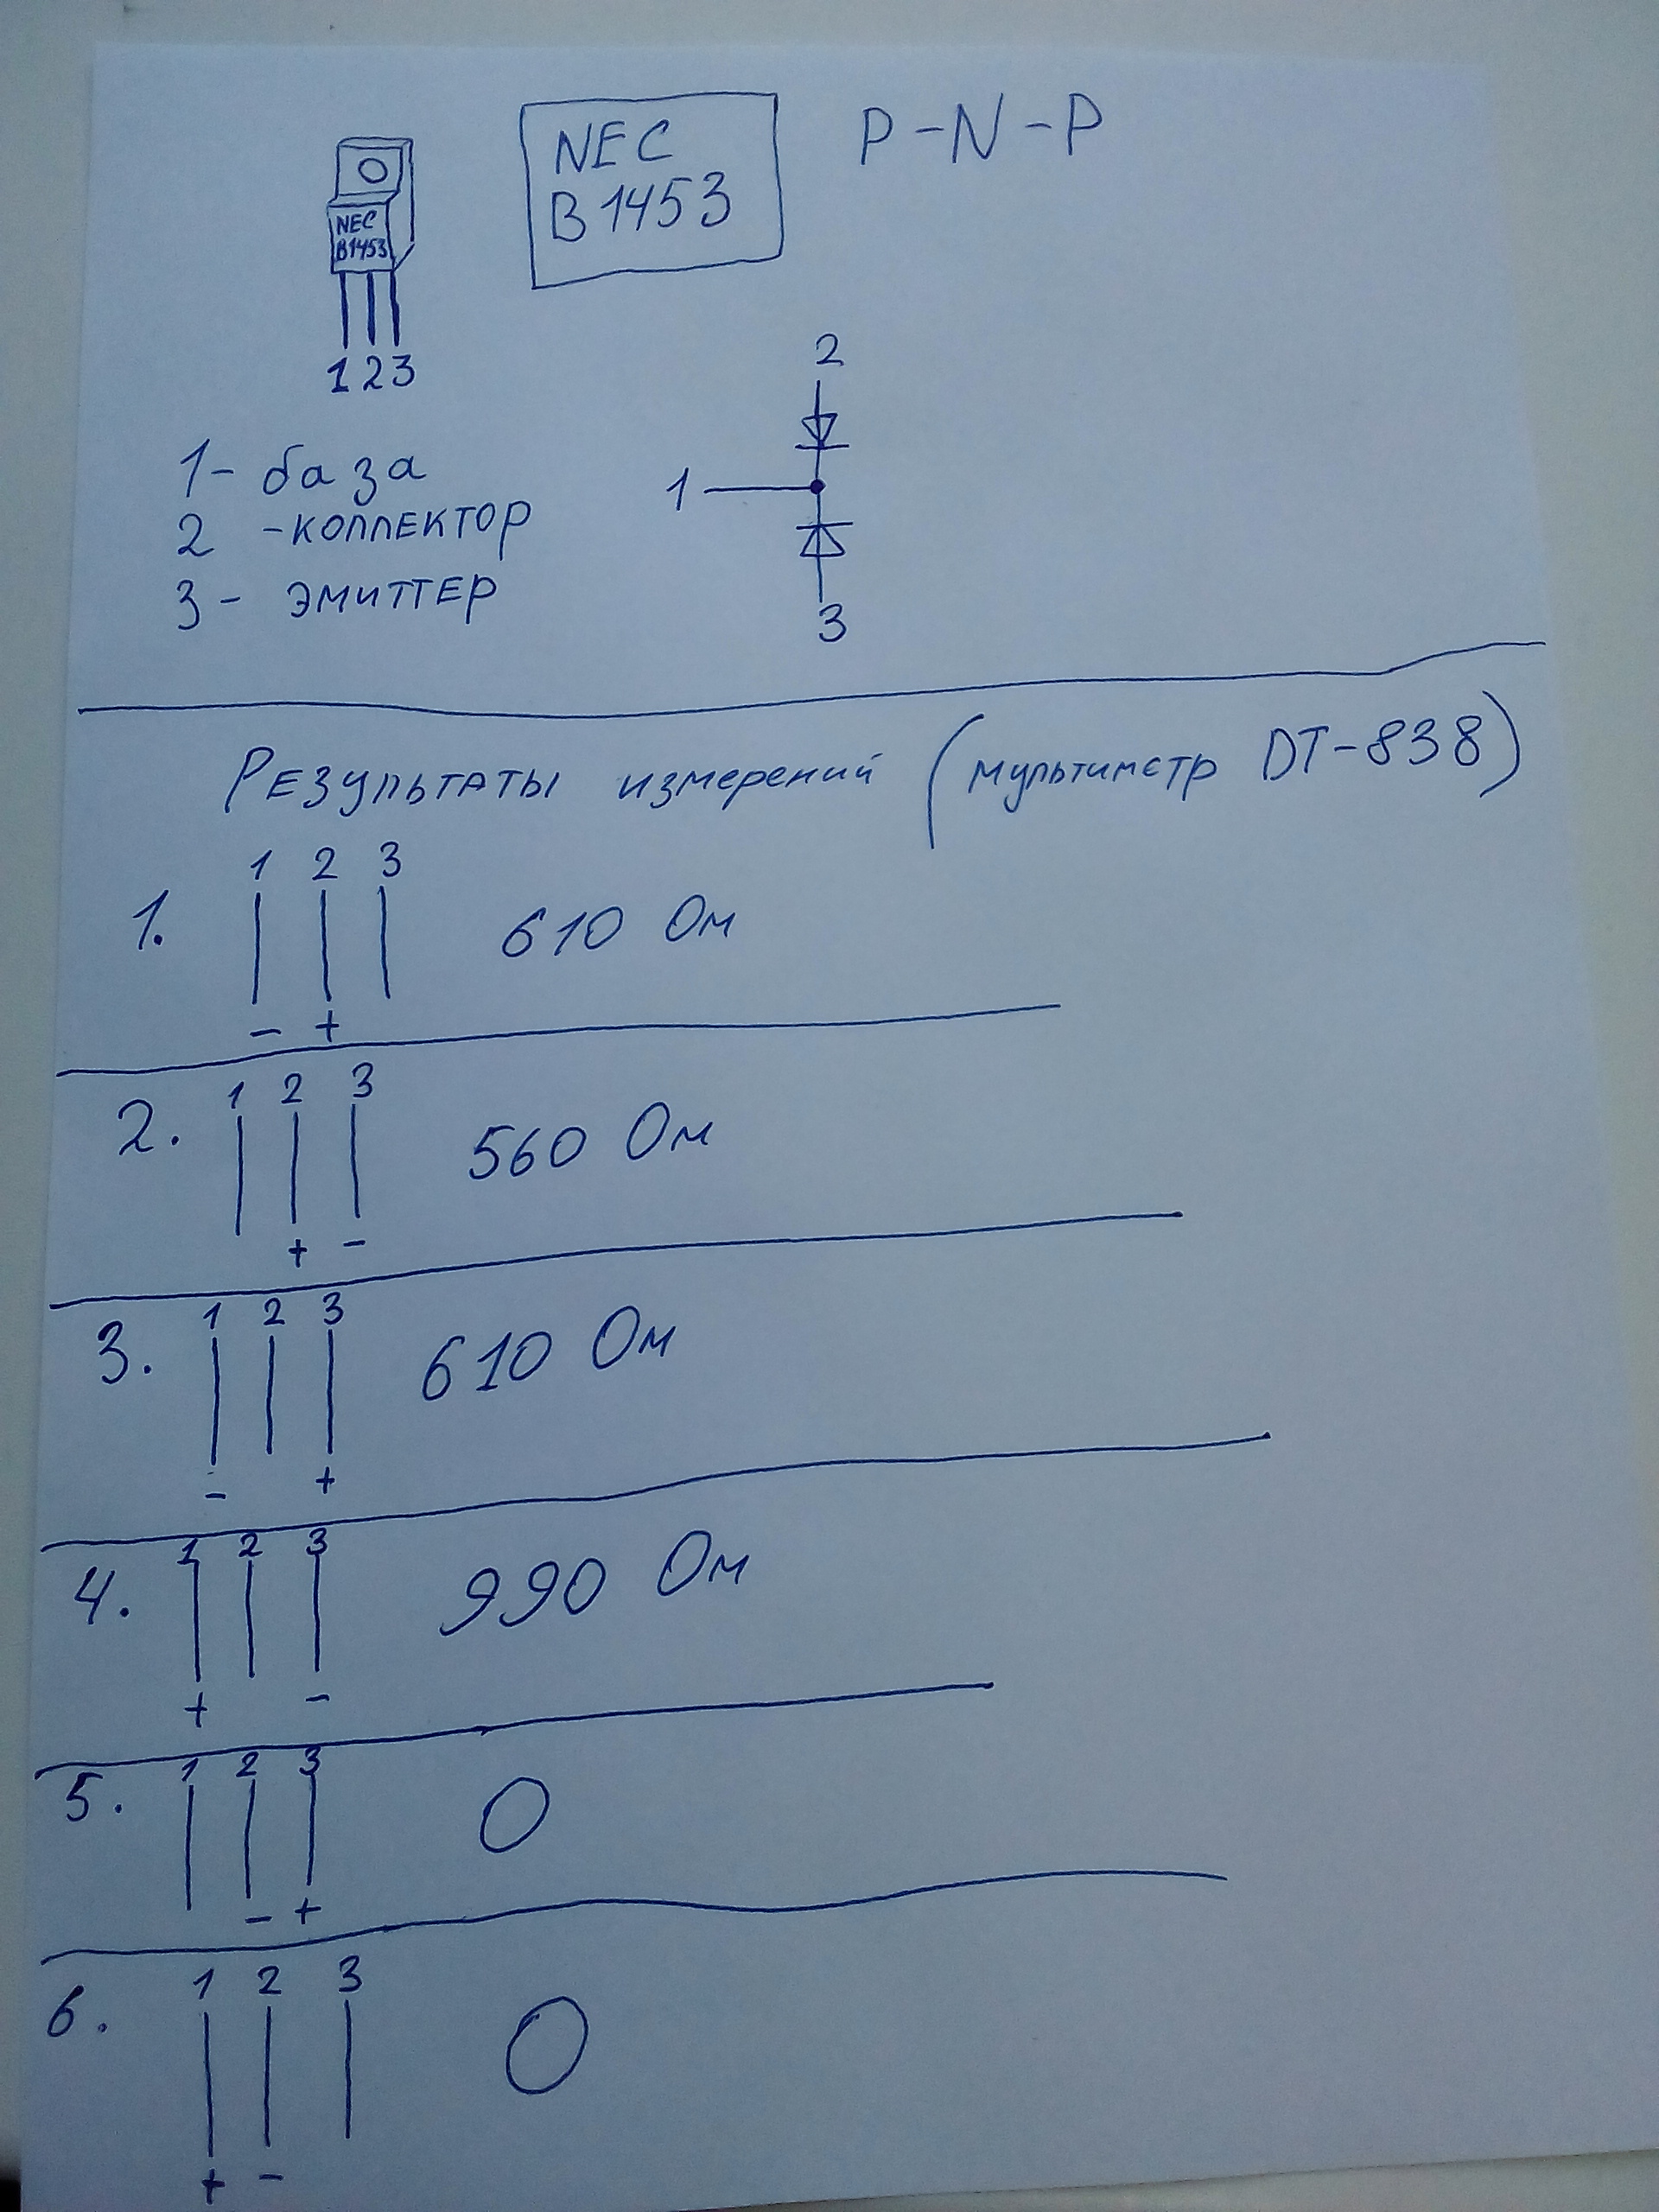 NEC
B1453
P-N-P
NEC
B1453
1 2 3
2
1- база
1
2 -коллектор
3- эмиттер
3
Результаты измерений (мультиметр DT-838)
1 2 3
1. 610 Ом
- +
1 2 3
2. 560 Ом
+ -
1 2 3
3. 610 Ом
- +
1 2 3
4. 990 Ом
+ -
1 2 3
5. 0
- +
1 2 3
6. 0
+ -